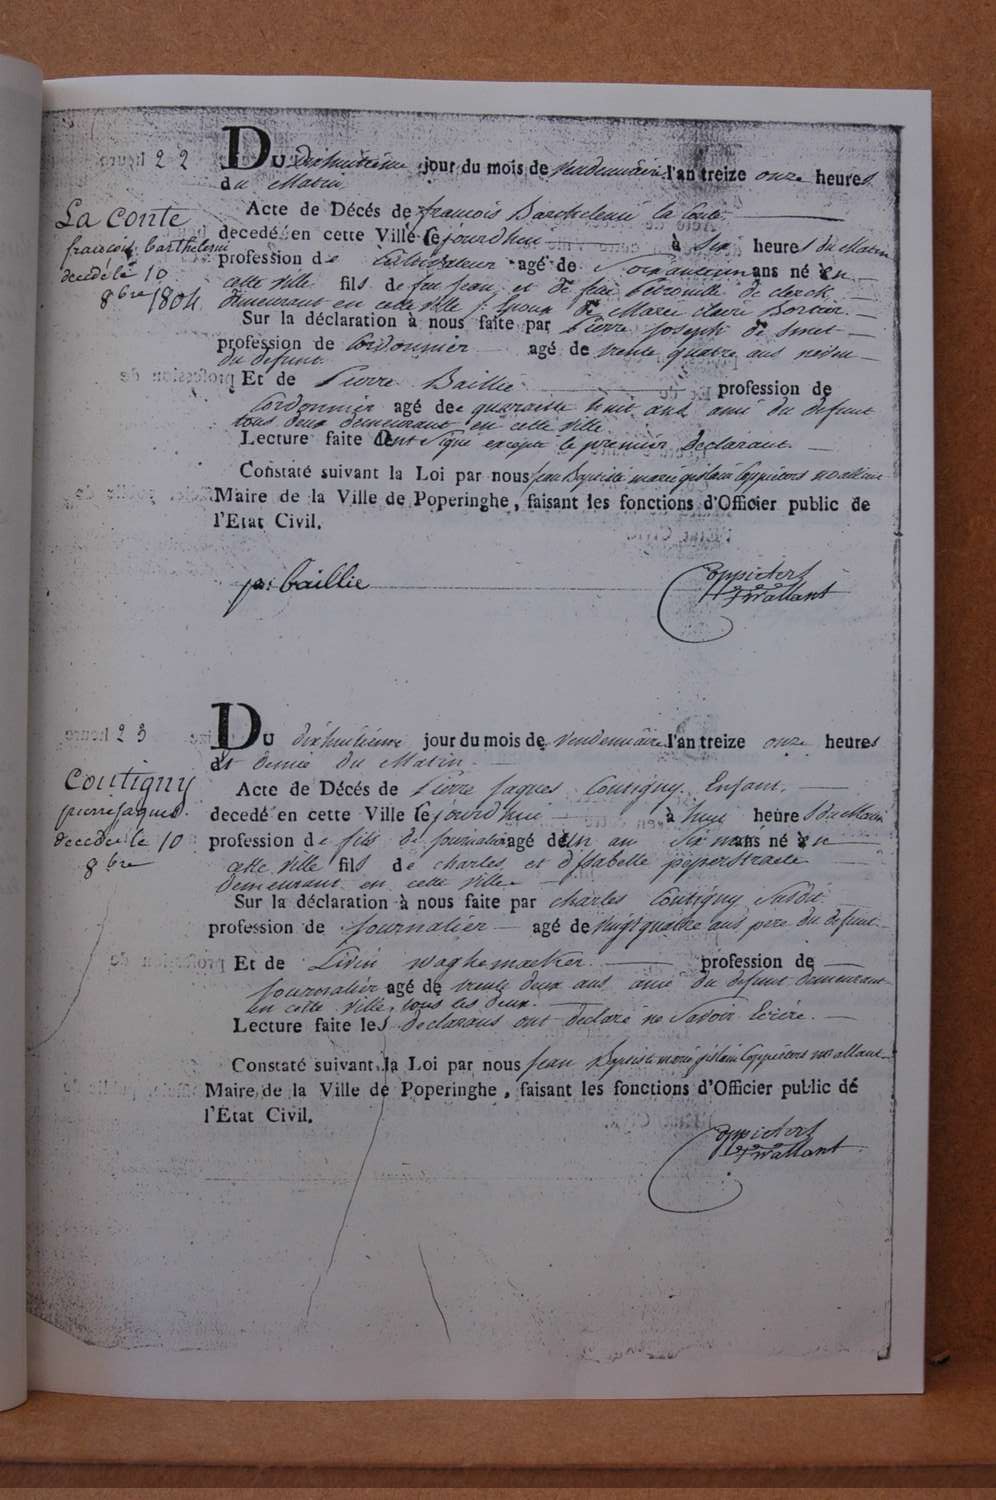 22
DU dixhuitième jour du mois de vendemiaire l'an treize onze heures
du Matin
La Conte
françois barthelemi
decedé le 10
8bre 1804.
Acte de Décés de francois Barthelemi la Conte
decedé en cette Ville cejourdhui à Six heures du Matin
profession de Cultivateur agé de ans né en
cette ville fils de feu jean et de feue petronille de clerck
demeurant en cette ville Epoux de Marie claire
Sur la déclaration à nous faite par Pierre joseph de Smet
profession de Cordonnier agé de trente quatre ans neveu
du defunt
Et de Pierre Baillie profession de
Cordonnier agé de quarante huit ans ami du defunt
tous deux demeurant en cette ville
Lecture faite ont Signé excepté le premier declarant.
Constaté suivant la Loi par nous jean Baptiste marie gislain Coppieters
Maire de la Ville de Poperinghe, faisant les fonctions d'Officier public de
l'Etat Civil.
p: baillie
Coppieters
Twallant
23
DU dixhuitième jour du mois de vendemiaire l'an treize onze heures
et demie du Matin.
Coutigny
pierre jaques
decedé le 10
8bre
Acte de Décés de Pierre Jaques Coutigny Enfant.
decedé en cette Ville cejourdhui à huit heures du Matin
profession de fils de journalier agé de un an Six mois ans né en
cette ville fils de charles et d'Isabelle peperstraete
demeurant en cette ville
Sur la déclaration à nous faite par charles Coutigny Susdit
profession de journalier agé de vingt quatre ans pere du defunt
Et de Livin waghemaeker profession de
journalier agé de trente deux ans ami du defunt demeurant
en cette ville tous les deux.
Lecture faite les declarans ont declaré ne Savoir Ecrire.
Constaté suivant la Loi par nous jean Baptiste marie gislain Coppieters
Maire de la Ville de Poperinghe, faisant les fonctions d'Officier public de
l'État Civil.
Coppieters
Twallant